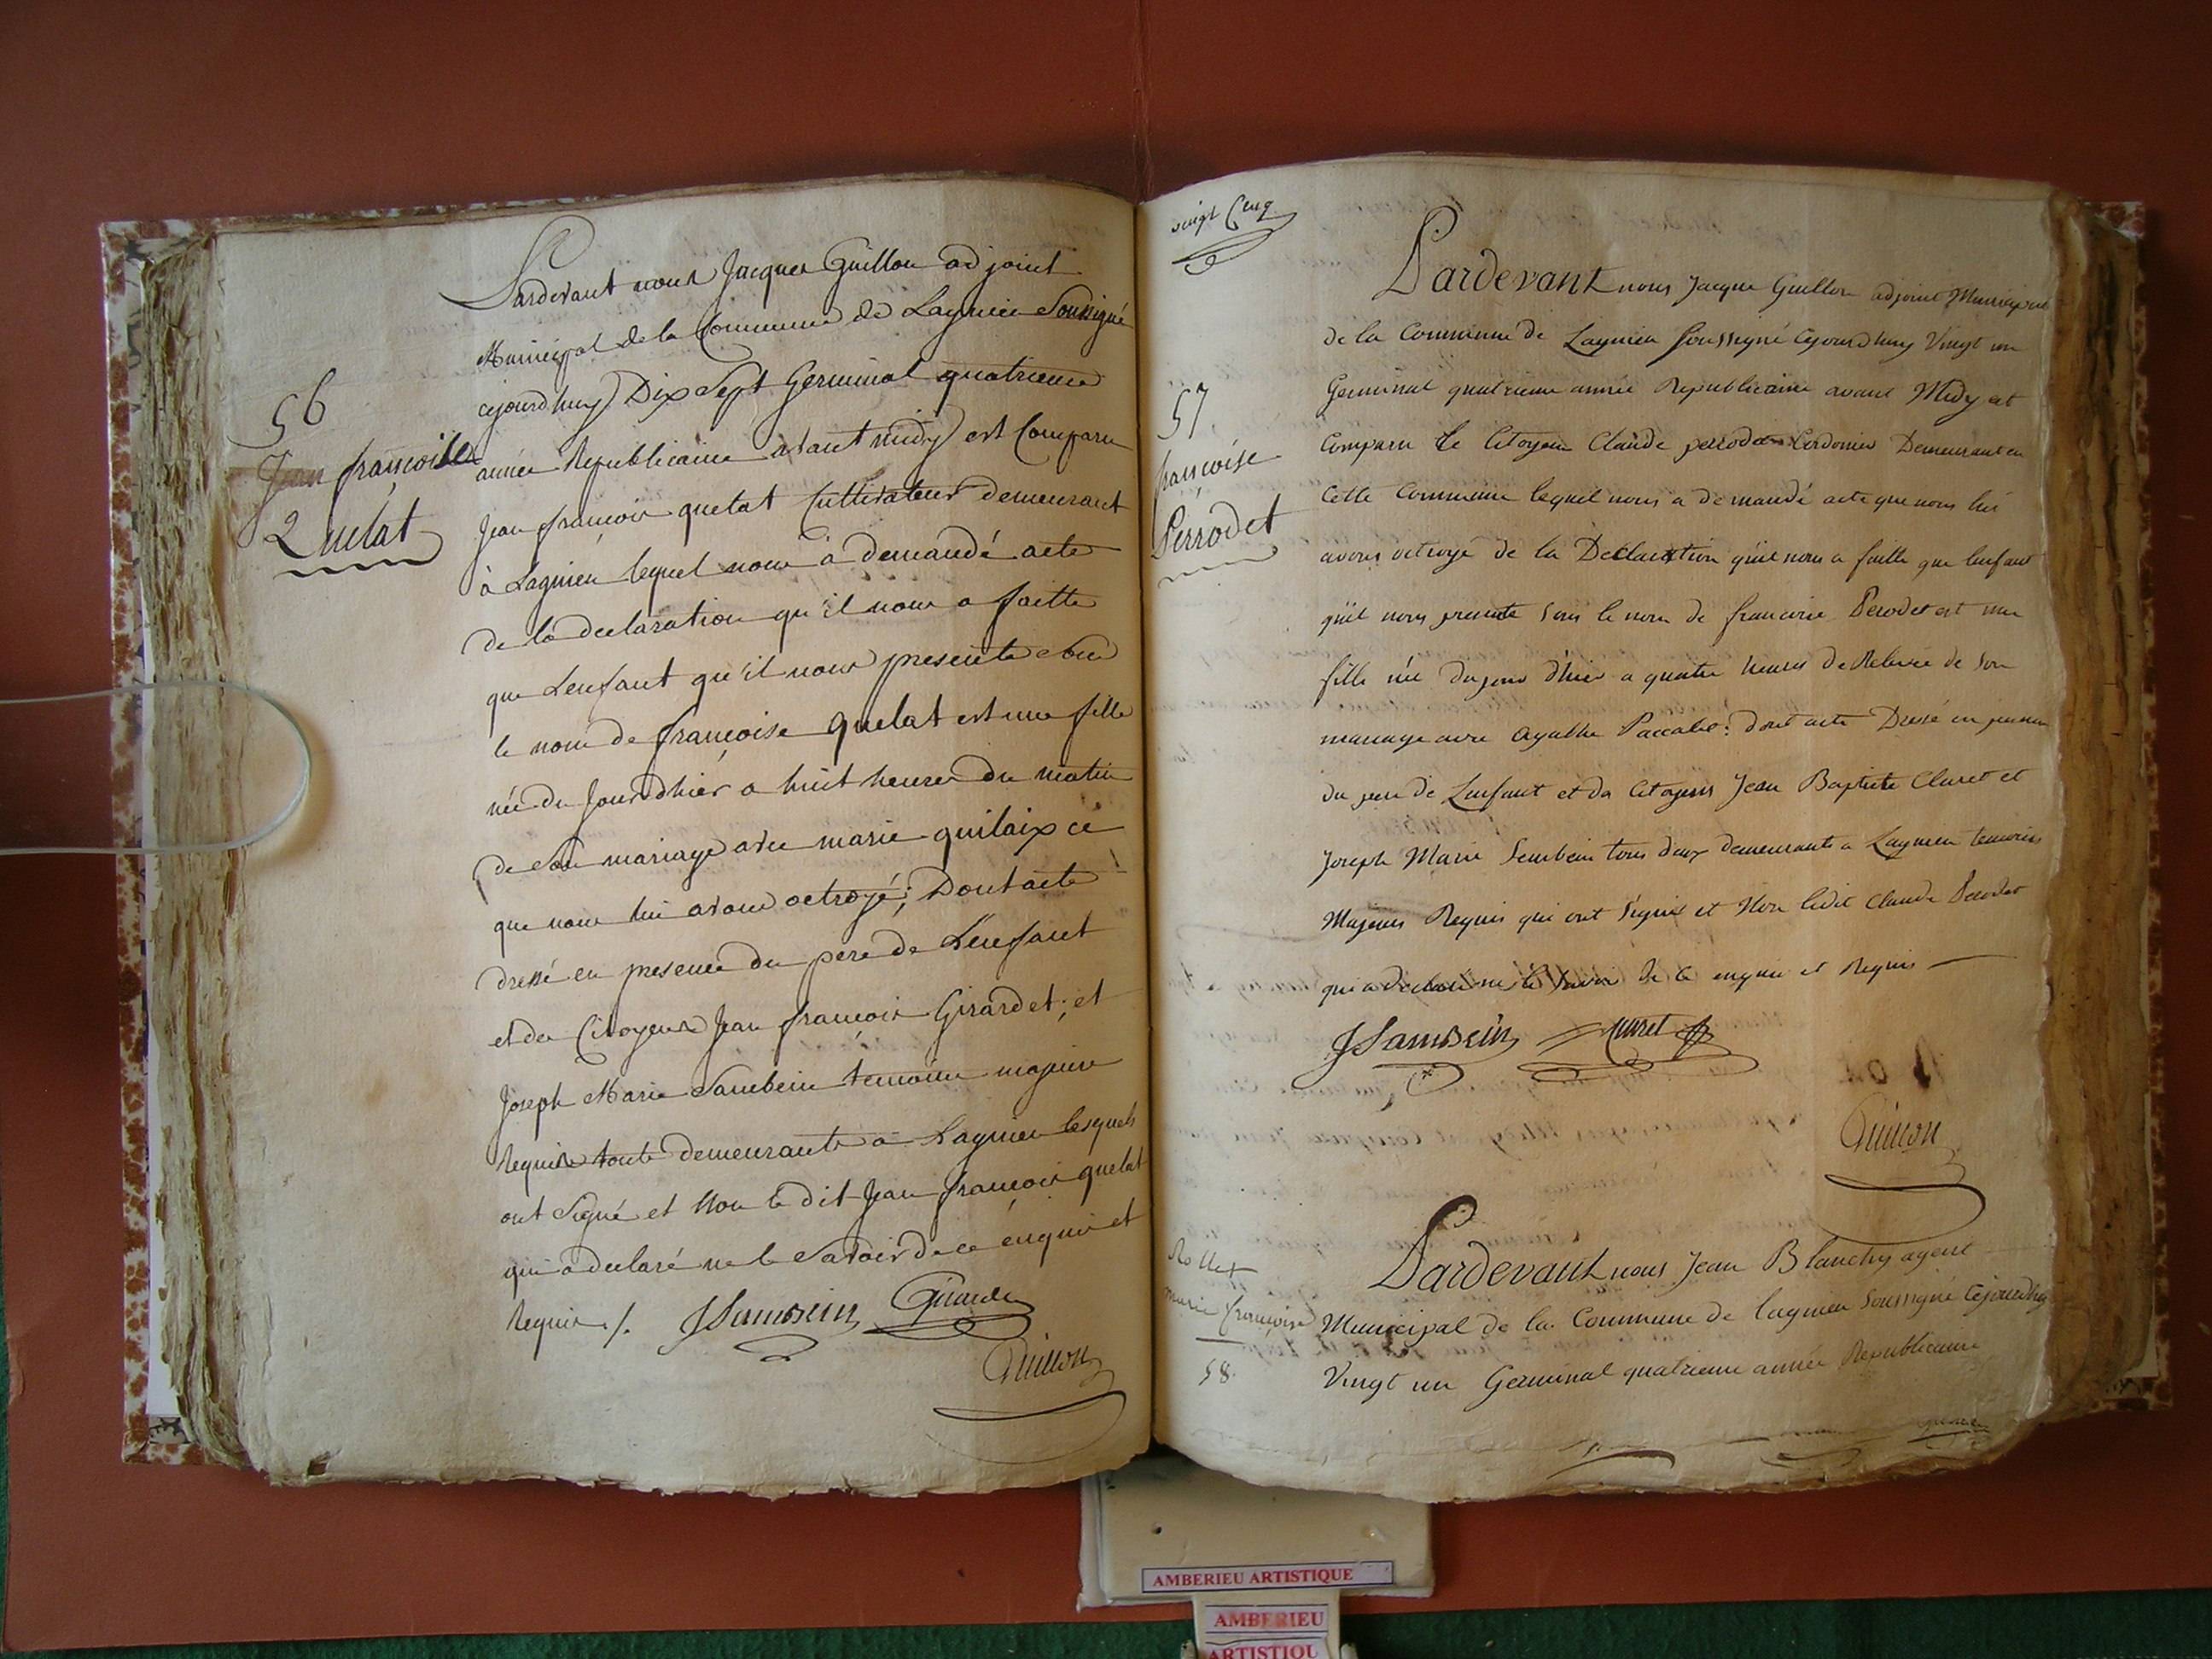 56
Jean françoise
Quelat
Pardevant nous Jacques Guillon adjoint
Municipal de la Commune de Lagnieu Soussigné
cejourdhuy Dix Sept Germinal quatrieme
année Republicaine avant midy est Comparu
Jean françois quelat Cultivateur demeurant
à Lagnieu lequel nous à demandé acte
de la declaration qu'il nous a faitte
que Lenfant qu'il nous presente sous
le nom de françoise quelat est une fille
née du Jour dhier a huit heures du matin
de son mariage avec marie quilaix ce
que nous lui avons octroyé; Dont acte
dressé en presence du pere de Lenfant
et des Citoyens Jean françois Girardet; et
Joseph Marie Sambein temoins majeurs
Requis touts demeurants a Lagnieu lesquels
ont Signé et Non le dit Jean françois quelat
qui a declaré ne le Savoir de ce enquis et
Requis ./. JSambein Girardet
Guillon
vingt Cinq
57
françoise
Perrodet
Pardevant nous Jacque Guillon adjoint Municipal
de la Commune de Lagnieu soussigné cejourdhuy Vingt un
Germinal quatrieme année Republicaine avant Midy est
Comparu le Citoyen Claude perrodet Cordonier Demeurant en
Cette Commune lequel nous a demandé acte que nous lui
avons octroyé de la Declaration qu'il nous a faitte que lenfant
qu'il nous presente sous le nom de francoise Perodet est une
fille née du jour d'hier a quatre heures de Relevée de son
mariage avec Agathe Paccalet: dont acte Dressé en presence
du pere de Lenfant et des Citoyens Jean Baptiste Claret et
Joseph Marie Sembein tous deux demeurants a Lagnieu temoins
Majeurs Requis qui ont signé et Non ledit Claude Perodet
qui a declaré ne le savoir de ce enquis et Requis
JSambein Claret
Guillon
Rollet
marie françoise
58.
Pardevant nous Jean Blanchy agent
Municipal de la Commune de lagnieu soussigné Cejourdhuy
Vingt un Germinal quatrieme année Republicaine
AMBERIEU ARTISTIQUE
AMBERIEU
ARTISTIQU